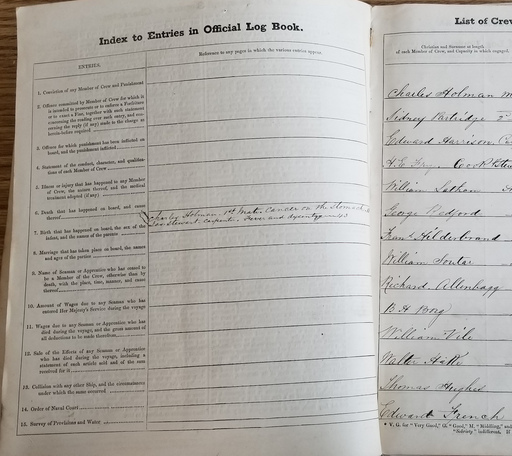 Index to Entries in Official Log Book.
ENTRIES.
Reference to any pages in which the various entries appear.
1. Conviction of any Member of Crew and Punishment
2. Offences committed by Member of Crew for which it
is intended to prosecute or to enforce a Forfeiture
or to exact a Fine, together with such statement
concerning the reading over such entry, and con-
cerning the reply (if any) made to the charge as
herein-before required
3. Offences for which punishment has been inflicted on
board, and the punishment inflicted
4. Statement of the conduct, character, and qualifica-
tions of each Member of Crew
5. Illness or injury that has happened to any Member
of Crew, the nature thereof, and the medical
treatment adopted (if any)
6. Death that has happened on board, and cause
thereof
Charles Holman 1st Mate Cancer on the Stomach
Carpenter Fever and dysentery
7. Birth that has happened on board, the sex of the
infant, and the names of the parents
8. Marriage that has taken place on board, the names
and ages of the parties
9. Name of Seaman or Apprentice who has ceased to
be a Member of the Crew, otherwise than by
death, with the place, time, manner, and cause
thereof
10. Amount of Wages due to any Seaman who has
entered Her Majesty's Service during the voyage
11. Wages due to any Seaman or Apprentice who has
died during the voyage, and the gross amount of
all deductions to be made therefrom
12. Sale of the Effects of any Seaman or Apprentice
who has died during the voyage, including a
statement of each article sold and of the sum
received for it
13. Collision with any other Ship, and the circumstances
under which the same occurred
14. Order of Naval Court
15. Survey of Provisions and Water
List of Crew
Christian and Surname at length
of each Member of Crew, and Capacity in which engaged.
Charles Holman
Sidney Partridge
Edward Harrison
Cook
William Latham
George Redford
Frank Hilderbrand
William Soutar
Richard Allenbagg
B H Borg
William Vile
Walter
Thomas Hughes
Edward French
* V. G. for "Very Good," G. "Good," M. "Middling," and
"Sobriety," indifferent.